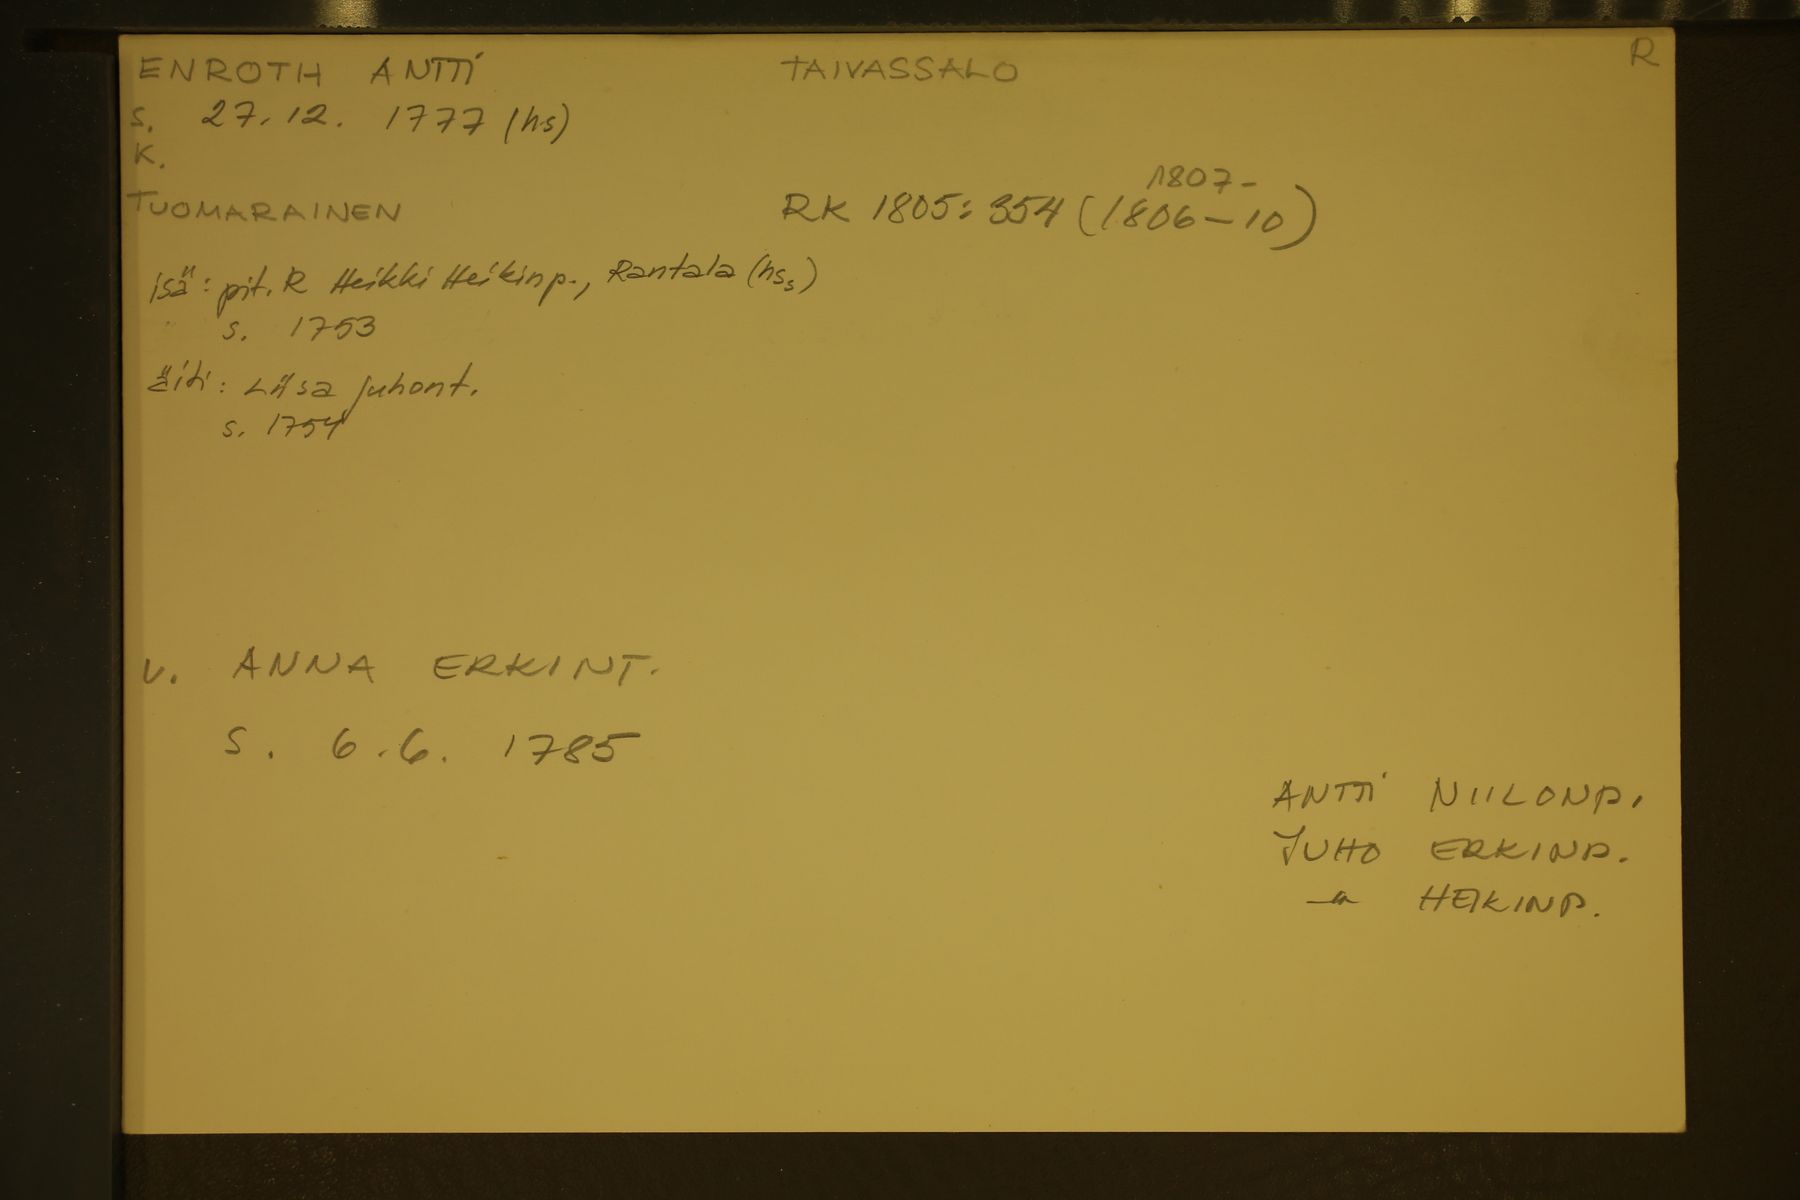 ENROTH ANTTI TAIVASSALO R
s. 27.12. 1777 (hs)
K.
1807-
TUOMARAINEN RK 1805: 354 (1806-10)
isä: pit. R Heikki Heikinp., Rantala (hss)
s. 1753
äiti: Liisa Juhont.
s. 1754
v. ANNA ERKINT.
s. 6.6. 1785
ANTTI NIILONP.
JUHO ERKINP.
-"- HEIKINP.